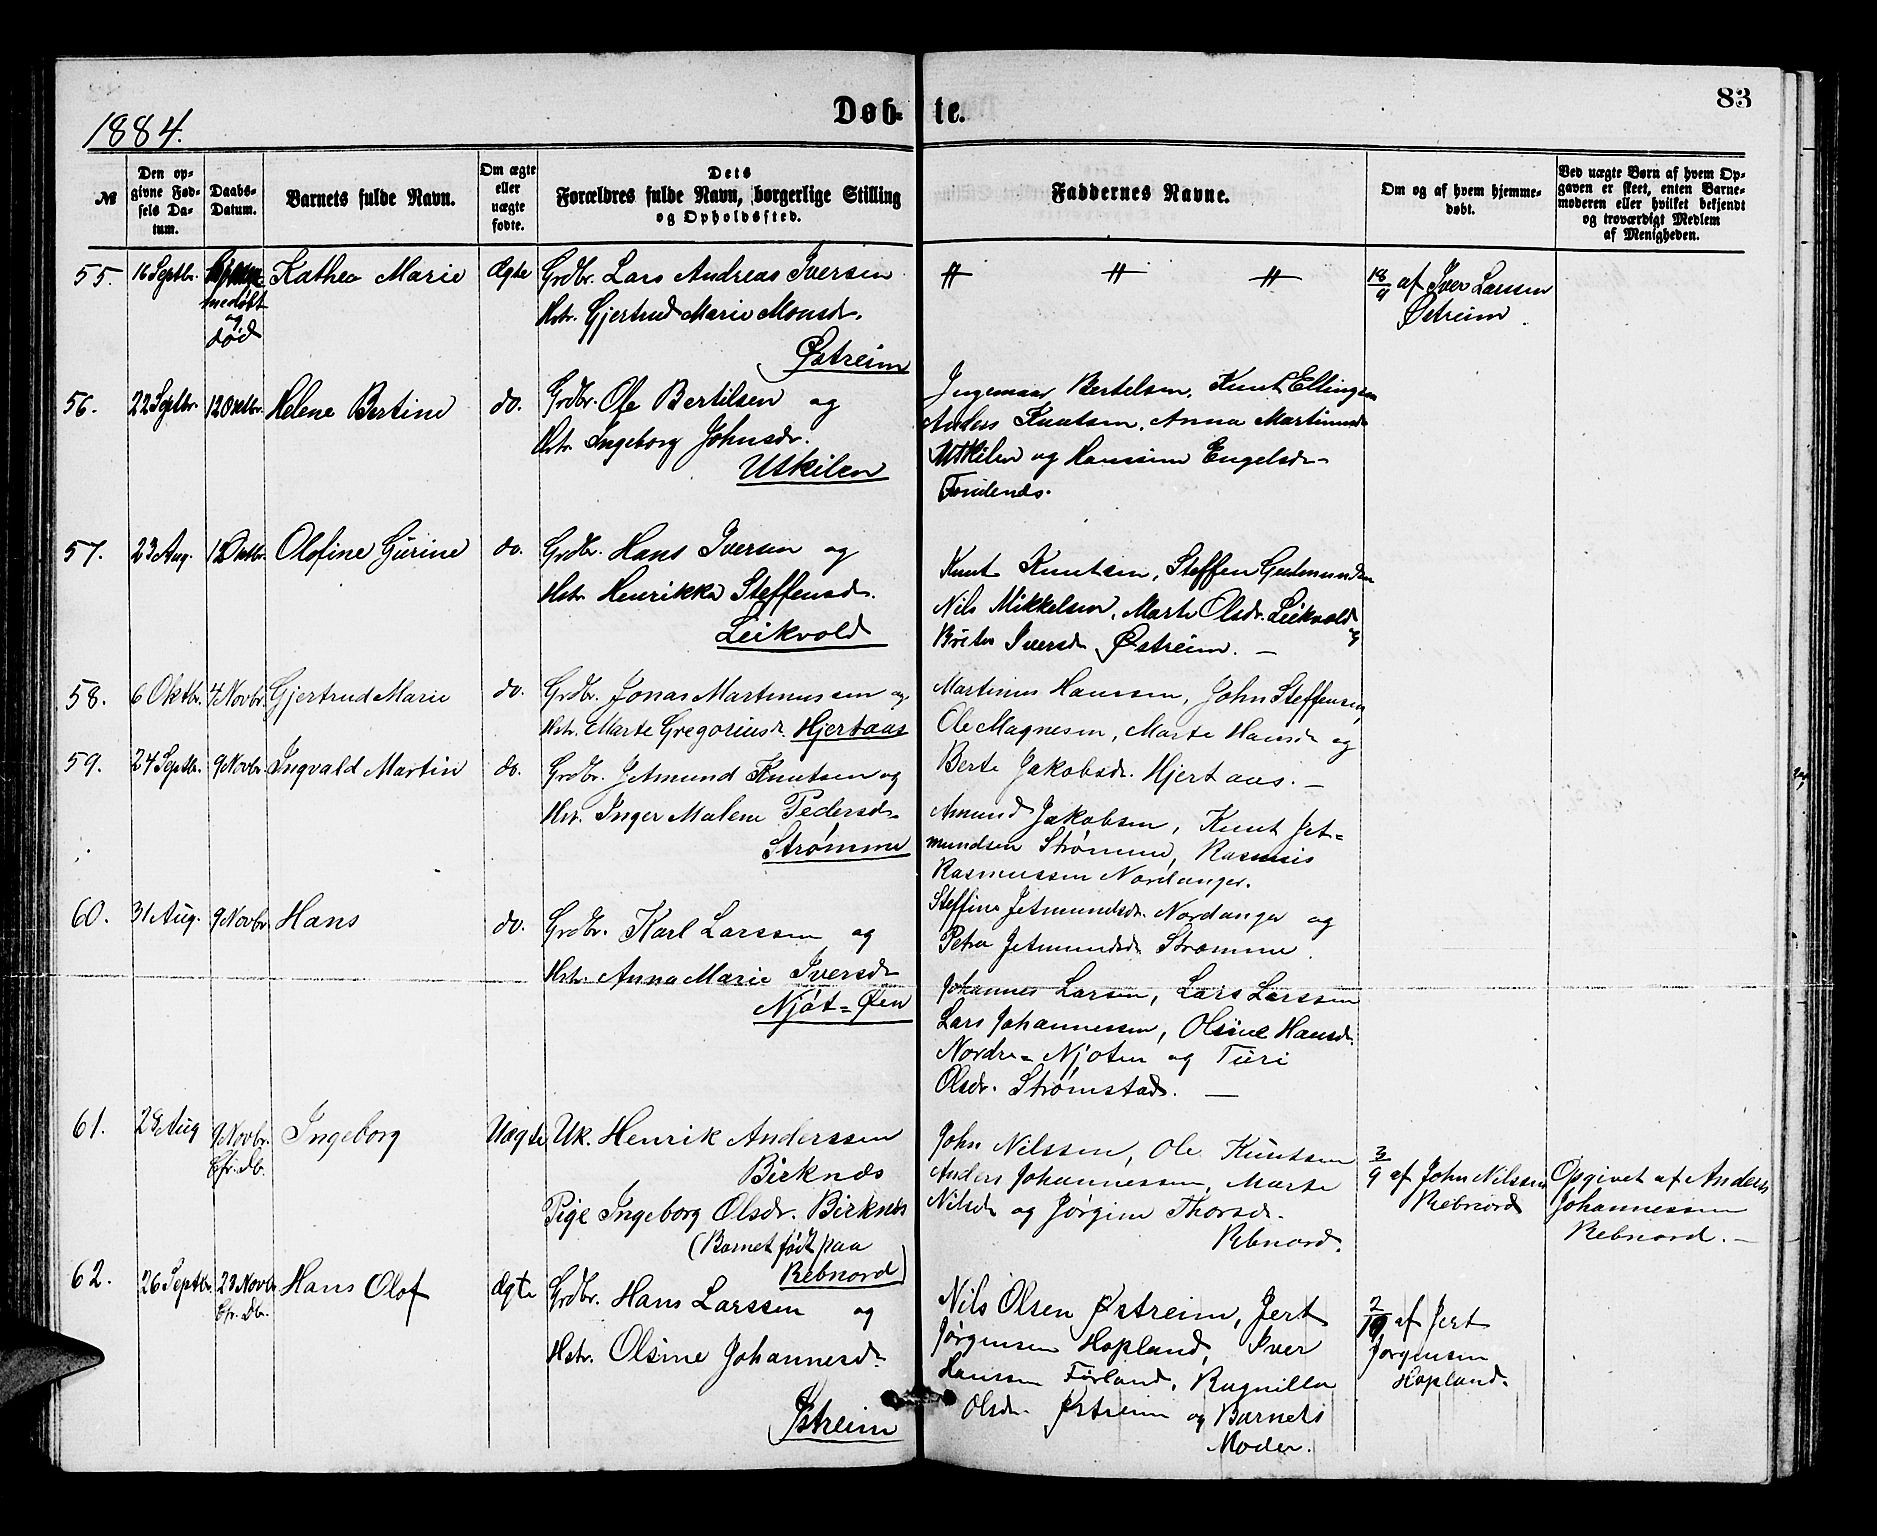 1884.
Døb- te.
83
№
Den op-
givne Fød-
sels Da-
tum.
Daabs-
Datum.
Barnets fulde Navn.
Om ægte
eller
uægte
fødte.
Dets
Forældres fulde Navn, borgerlige Stilling
og Opholdssted.
Faddernes Navne.
Om og af hvem hjemme-
døbt.
Ved uægte Børn af hvem Op-
gaven er skeet, enten Barne-
moderen eller hvilket bekjendt
og troværdigt Medlem
af Menigheden.
55. 16 Septbr.
medøbt
og
død
Kathea Marie
Ægte
Grdbr. Lars Andreas Iversen
Hstr. Gjertrud Marie Monsdr.
Østreim
〃 〃 〃
18/9 af Iver Larssen
Østreim
56. 22 Septbr. 12 Oktbr. Helene Bertine
do.
Grdbr. Ole Bertilsen og
Hstr. Ingeborg Johnsdr.
Utkilen
Ingemar Bertelsen, Knut Ellingsen
Anders Knutsen, Anna Martinusdr
Utkilen og Hansine Engelsdr
57. 23 Aug. 12 Oktbr. Olofine Gurine
do.
Grdbr. Hans Iversen og
Hstr. Henrikka Steffensdr.
Leikvold
Knut Knutsen, Steffen Gudmundsen
Nils Mikkelsen, Marte Olsdr. Leikvold
og
Brite Iversdr Østreim. —
58. 6 Oktbr. 4 Novbr. Gjertrud Marie
do.
Grdbr. Jonas Martinussen og
Hstr. Marte Gregoriusdr. Hjertaas
Martinus Hanssen, John Steffensen,
Ole Magnesen, Marte Hansdr og
Berte Jakobsdr. Hjertaas. —
59. 24 Septbr. 9 Novbr. Ingvald Martin
do.
Grdbr. Jetmund Knutsen og
Hstr. Inger Malene Pedersdr
Strømme
Amund Jakobsen, Knut Jet=
mundsen Strømme, Rasmus
Rasmussen Nordanger.
Steffine Jetmundsdr. Nordanger og
Petra Jetmundsdr Strømme.
60. 31 Aug. 9 Novbr Hans
do.
Grdbr. Karl Larssen og
Hstr. Anna Marie Iversdr
Njøt=Øen
Johannes Larsen, Lars Larssen
Lars Johannessen, Olsine Hansdr.
Nordre=Njøten og Turi
Olsdr. Strømstad. —
61. 28 Aug 9 Novbr.
Cfr. Db.
Ingeborg
Uægte
Uk. Henrik Anderssen
Birknes
Pige Ingeborg Olsdr. Birknes
(Barnet født paa
Rebnord)
John Nilssen, Ole Knutsen
Anders Johannessen, Marte
Nilsdr og Jørgine Thorsdr.
Rebnord.
3/9 af John Nilssen
Rebnord
Opgivet af Anders
Johannessen
Rebnord. —
62. 26 Septbr. 23 Novbr
Cfr. Db.
Hans Olof
Ægte
Grdbr. Hans Larssen og
Hstr. Olsine Johannesdr.
Østreim
Nils Olsen Østreim, Jert
Jørgensen Hopland, Iver
Hanssen Førland, Ragnilla
Olsdr. Østreim og Barnets
Moder.
2/10 af Jert
Jørgensen
Hopland.